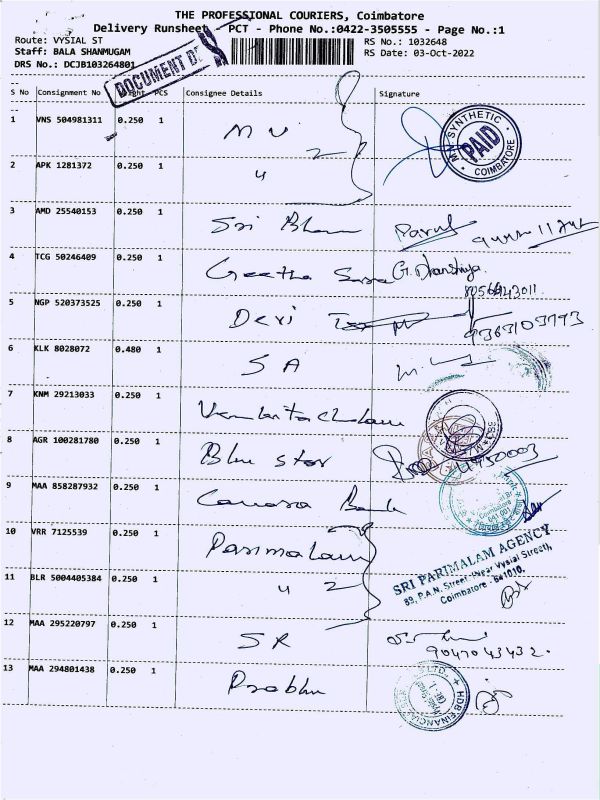 THE PROFESSIONAL COURIERS, Coimbatore
Delivery Runsheet - PCT - Phone No.:0422-3505555 - Page No.:1
Route: VYSIAL ST
RS No.: 1032648
Staff: BALA SHANMUGAM
RS Date: 03-Oct-2022
DRS No.: DCJB103264801
DOCUMENT
S No Consignment No PCS Consignee Details Signature
1 VNS 504981311 0.250 1 M N
MN SYNTHETIC PAID COIMBATORE
2 APK 1281372 0.250 1 " 2
3 AMD 25540153 0.250 1 Sri
4 TCG 50246409 0.250 1 Geetha G. Dhanshiya
8056943011
5 NGP 520373525 0.250 1 Devi
9363103793
6 KLK 8028072 0.480 1 S A
7 KNM 29213033 0.250 1
8 AGR 100281780 0.250 1 Blue star
9 MAA 858287932 0.250 1 Canara Bank
10 VRR 7125539 0.250 1 Parimalam
SRI PARIMALAM AGENCY
89, P.A.N. Street, (Near Vysial Street),
Coimbatore - 641010.
11 BLR 5004405384 0.250 1 " 2
12 MAA 295220797 0.250 1 S R
9047043432.
13 MAA 294801438 0.250 1 Prabhu
HDB FINANCIAL LTD